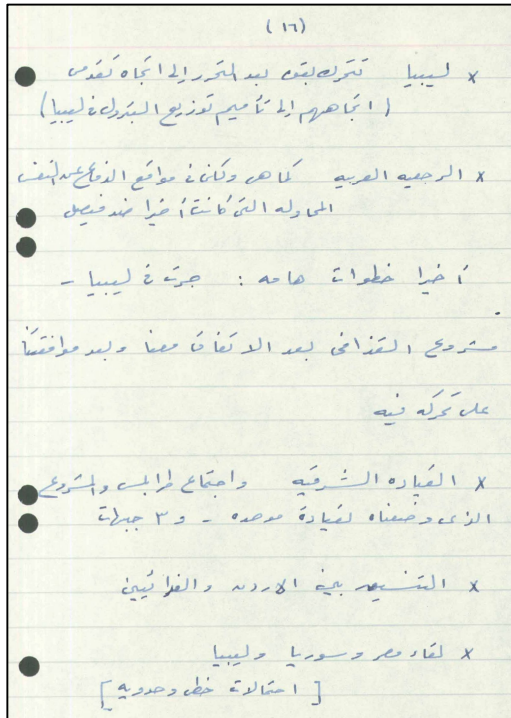 (١٦)
× ليبيا تتحرك بقوه بعد التحرر إلى اتجاه تقدمى
(اتجاههم إلى تأميم توزيع البترول فى ليبيا)
× الرجعيه العربيه كما هى ولكن فى مواقع الدفاع عن النفس
المحاوله التى كانت أخيرا ضد فيصل
أخيرا خطوات هامه : جرت فى ليبيا -
مشروع القذافى بعد الاتفاق معنا وبعد موافقتنا
على تحركه فيه
× القياده الشرقيه واجتماع طرابلس والمشروع
الذى وضعناه لقيادة موحده - و ٣ جبهات
× التنسيق بين الاردن والفدائيين
× لقاء مصر وسوريا وليبيا
[احتمالات خطى وحدويه]